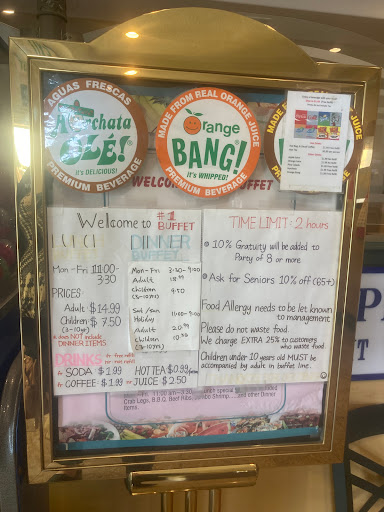 AGUAS FRESCAS
OLÉ!
IT'S DELICIOUS!
PREMIUM BEVERAGE
MADE FROM REAL ORANGE JUICE
Orange
BANG!
IT'S WHIPPED!
PREMIUM BEVERAGE
Welcome to #1
BUFFET
LUNCH
Mon - Fri 11:00-
3:30
PRICES
Adult $14.99
Children $7.50
(3-10yr)
* does NOT include
DINNER ITEMS
DRINKS
SODA $1.99
COFFEE $1.99
HOT TEA $0.99
JUICE $2.50
DINNER
BUFFET
Mon - Fri 3:30 - 9:00
Adult
Children 9.50
(3-10yrs)
Sat / Sun 11:00 - 9:00
Holiday
Adult 20.99
Children 10.50
(3-10yrs)
TIME LIMIT: 2 hours
10% Gratuity will be added to
Party of 8 or more
Ask for Seniors 10% off (65+)
Food Allergy needs to be let known
to management
Please do not waste food.
We charge EXTRA 25% to customers
who waste food.
Children under 10 years old MUST be
accompanied by adult in buffet line.
Crab Legs, B.B.Q. Beef Ribs, Jumbo Shrimp..... and other Dinner
Items.